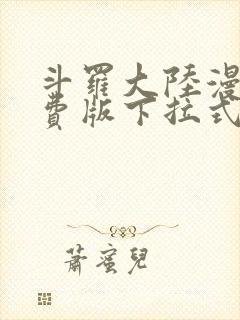 斗羅大陸漫
費版下拉式
蕭蜜兒